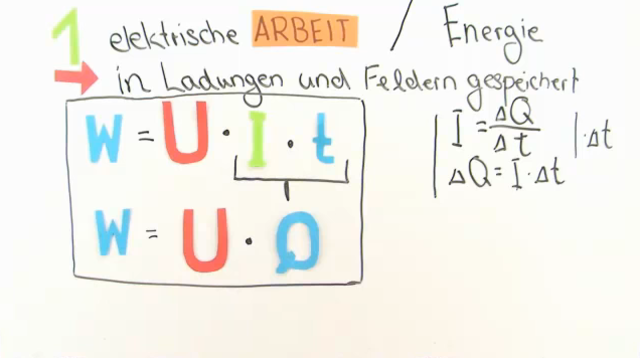 1 elektrische ARBEIT / Energie
in Ladungen und Feldern gespeichert
W = U · I · t
W = U · Q
I = ΔQ/Δt |·Δt
ΔQ = I · Δt